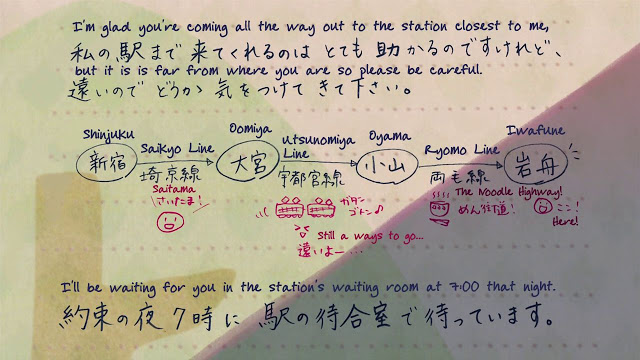 I'm glad you're coming all the way out to the station closest to me,
私の駅まで来てくれるのはとても助かるのですけれど、
but it is is far from where you are so please be careful.
遠いのでどうか気をつけてきて下さい。
Shinjuku Saikyo Line Oomiya Utsunomiya Line Oyama Ryomo Line Iwafune
新宿 埼京線 大宮 宇都宮線 小山 両毛線 岩舟
Saitama
さいたま!
ガタン
ゴトン♪
Still a ways to go...
遠いよー……
The Noodle Highway!
めん街道!
ここ!
Here!
I'll be waiting for you in the station's waiting room at 7:00 that night.
約束の夜7時に駅の待合室で待っています。